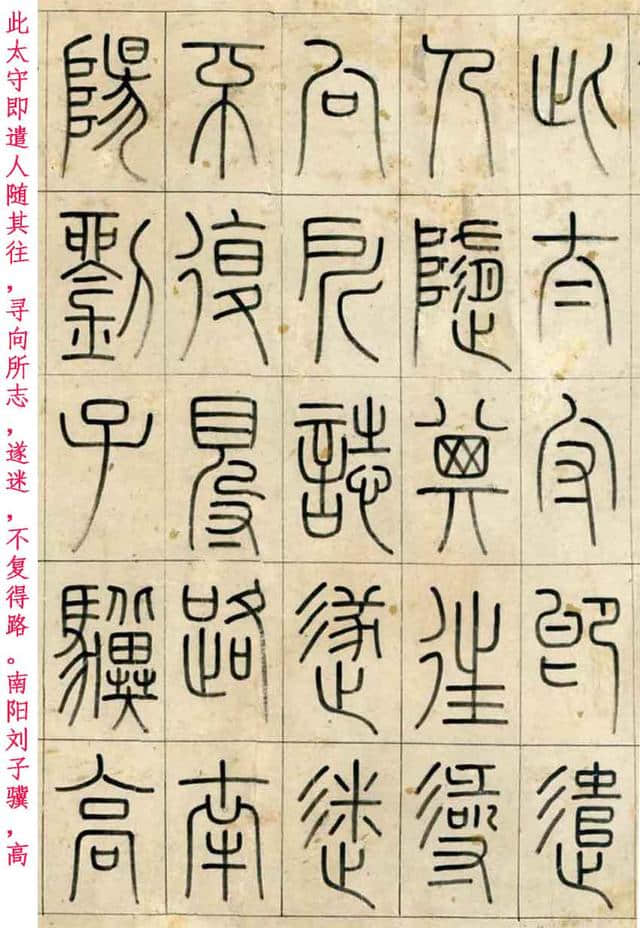 此太守即遣
人隨其往尋
向所誌遂迷
不復得路南
陽劉子驥高
此太守即遣人随其往，寻向所志，遂迷，不复得路。南阳刘子骥，高